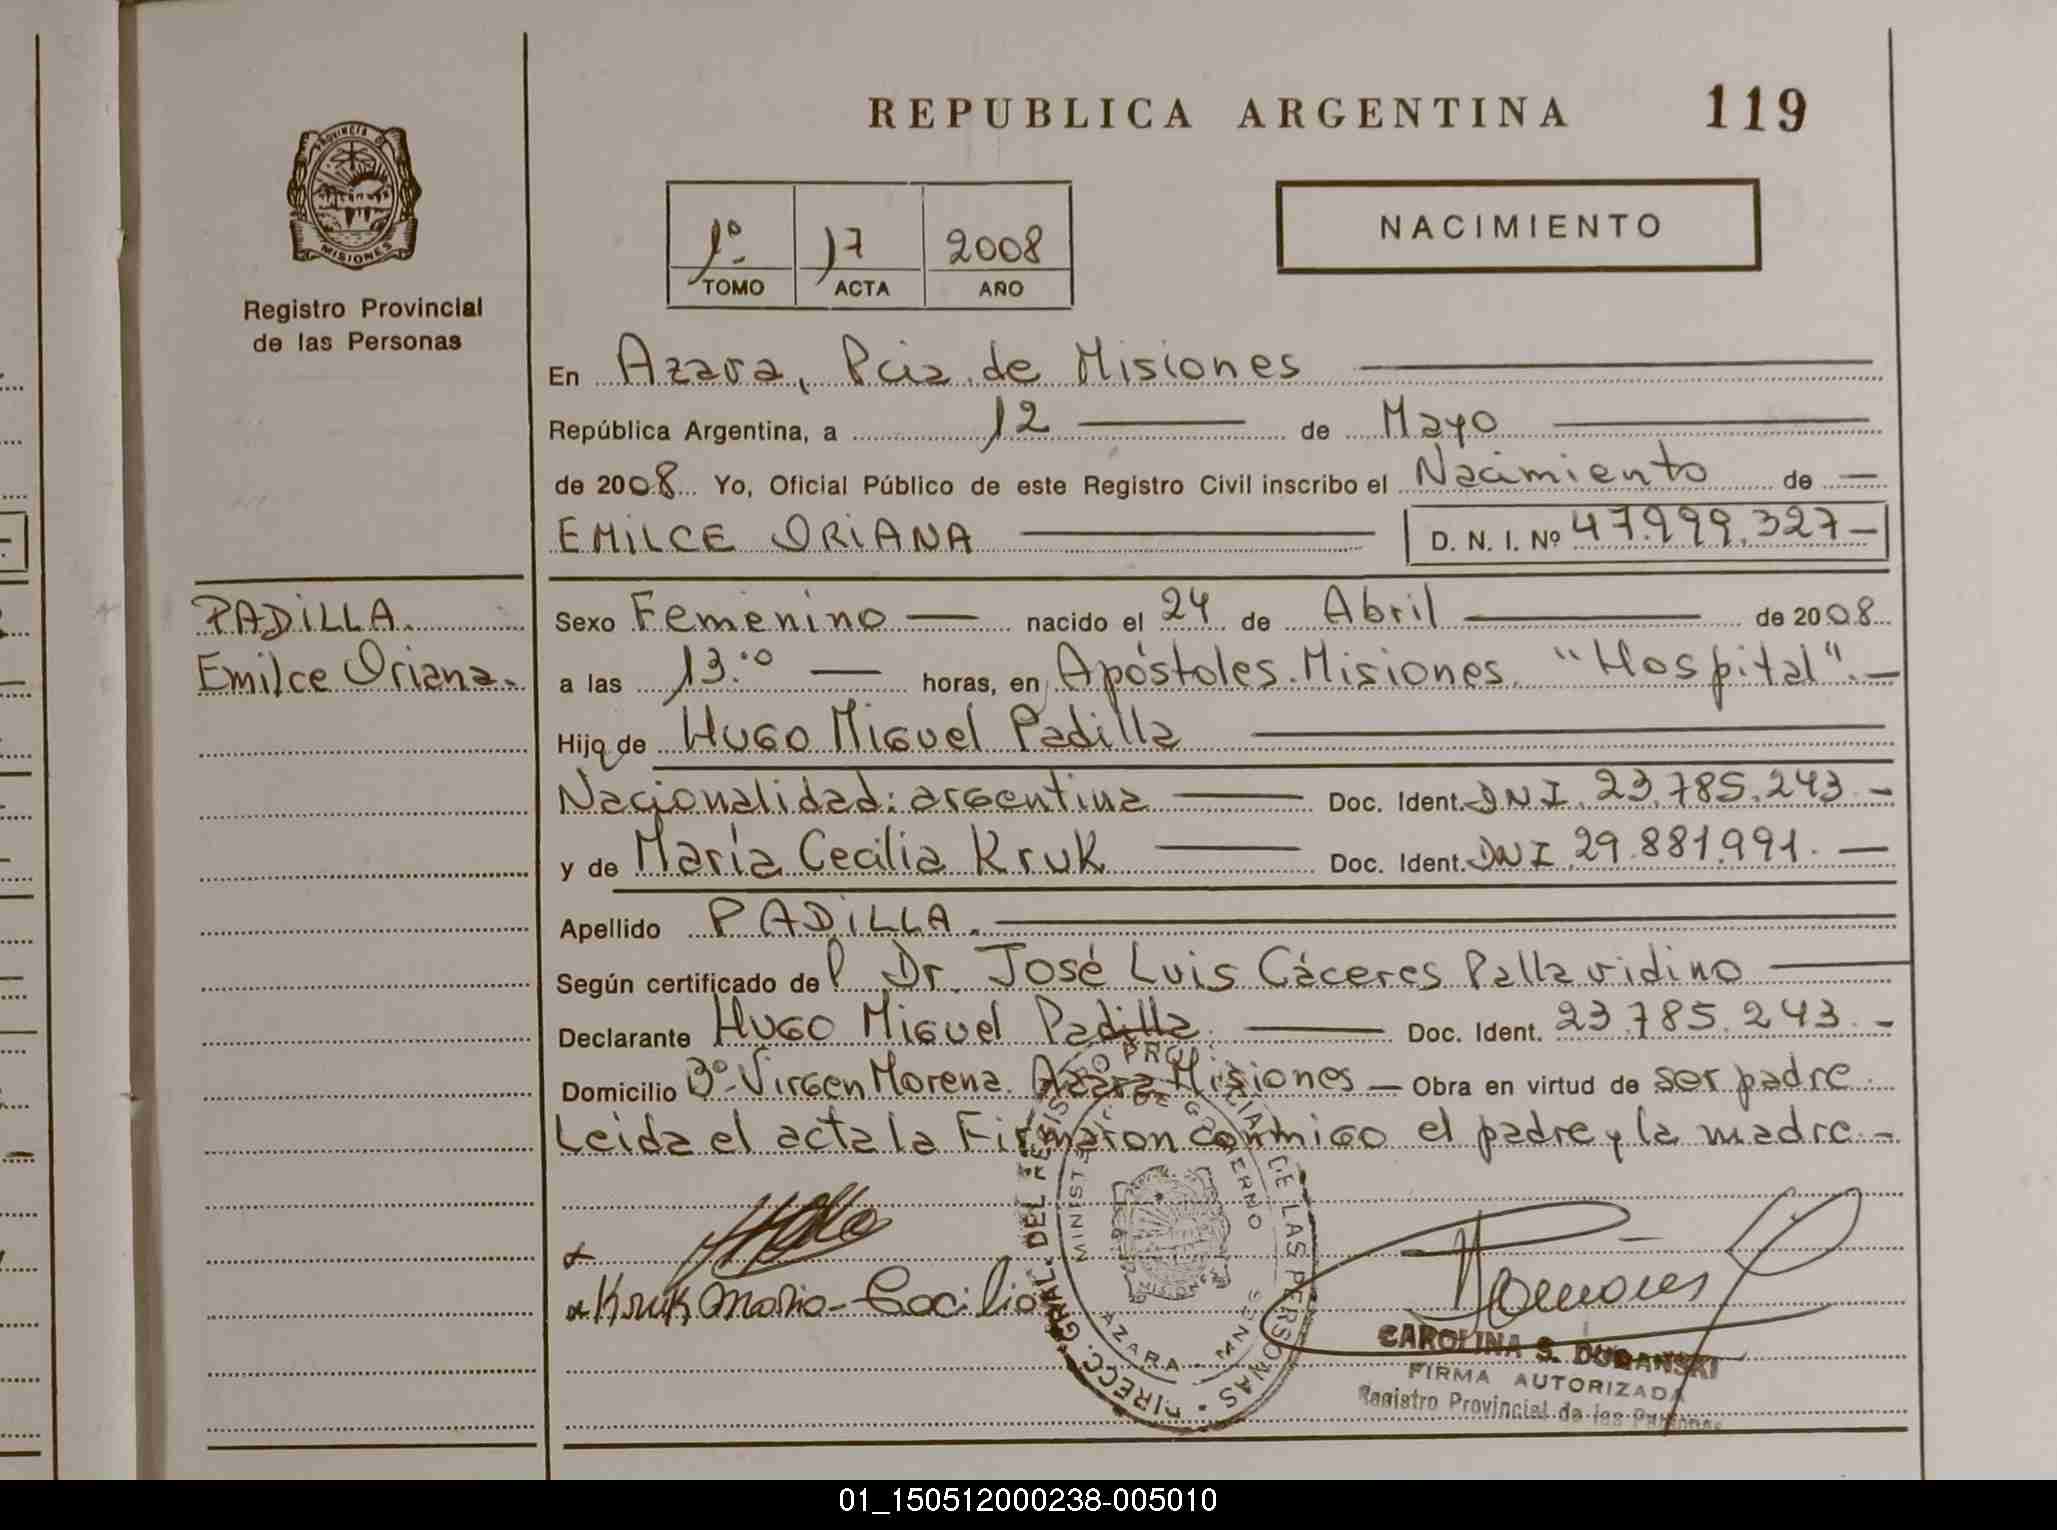 REPUBLICA ARGENTINA 119
PROVINCIA DE
MISIONES
Registro Provincial
de las Personas
1º 17 2008
TOMO ACTA AÑO
NACIMIENTO
En Azara, Pcia de Misiones
República Argentina, a 12 de Mayo
de 2008 Yo, Oficial Público de este Registro Civil inscribo el Nacimiento de
EMILCE ORIANA D. N. I. Nº 47.999.327-
PADILLA.
Emilce Oriana.
Sexo Femenino nacido el 24 de Abril de 2008
a las 13.º horas, en Apóstoles. Misiones. "Hospital".
Hijo de Hugo Miguel Padilla
Nacionalidad: argentina Doc. Ident. DNI. 23.785.243.-
y de María Cecilia Kruk Doc. Ident. DNI. 29.881.991.
Apellido PADILLA.
Según certificado del Dr. José Luis Cáceres Pallavidino
Declarante Hugo Miguel Padilla. Doc. Ident. 23.785.243.-
Domicilio Bº-Virgen Morena. Azara Misiones Obra en virtud de ser padre.
Leida el acta la Firmaron conmigo el padre y la madre.-
Kruk Maria Cecilia
DIRECC. GRAL. DEL REGISTRO PROVINCIAL DE LAS PERSONAS
MINIST. DE GOBIERNO
MISIONES
AZARA - MNES
CAROLINA S. DUDANSKI
FIRMA AUTORIZADA
Registro Provincial de las Personas
01_150512000238-005010